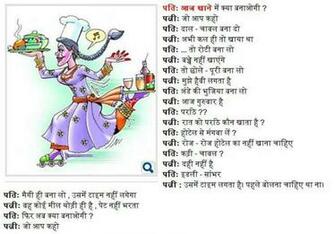 पति: आज खाने में क्या बनाओगी ?
पत्नी: जो आप कहो
पति: दाल - चावल बना दो
पत्नी: अभी कल ही तो खाया था
पति: ... तो रोटी बना लो
पत्नी: बच्चे नहीं खाएंगे
पति: तो छोले - पूरी बना लो
पत्नी: मुझे हैवी लगता है
पति: अंडे की भुजिया बना लो
पत्नी: आज गुरुवार है
पति: परांठे ??
पत्नी: रात को परांठे कौन खाता है ?
पति: होटल से मंगवा लें ?
पत्नी: रोज - रोज होटल का नहीं खाना चाहिए
पति: कढ़ी - चावल ?
पत्नी: दही नहीं है
पति: इडली - सांभर
पत्नी : उसमें टाइम लगता है। पहले बोलना चाहिए था ना।
पति: मैगी ही बना लो , उसमें टाइम नहीं लगेगा
पत्नी: वह कोई मील थोड़ी ही है , पेट नहीं भरता
पति: फिर अब क्या बनाओगी ?
पत्नी: जो आप कहो